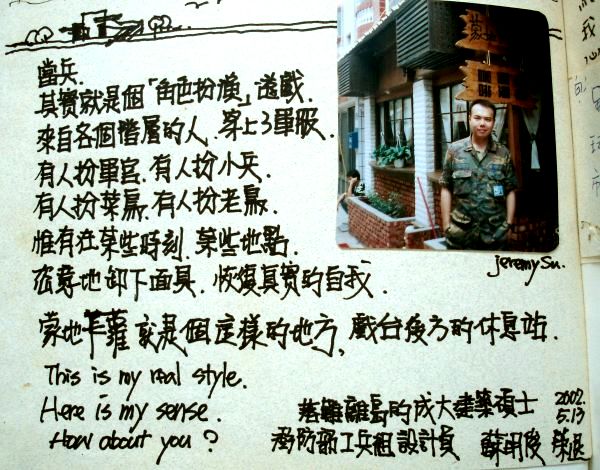 當兵.
其實就是個「角色扮演」遊戲.
來自各個階層的人、穿上了軍服.
有人扮軍官.有人扮小兵.
有人扮菜鳥.有人扮老鳥.
惟有在某些時刻.某些地點.
恣意地卸下面具.恢復真實的自我.
蒙地芊蘿就是個這樣的地方,戲台後方的休息站.
This is my real style.
Here is my sense.
How about you?
jeremy Su.
落難離島的成大建築碩士
防部工兵組設計員 蘇明俊 榮退
2002.
5.13